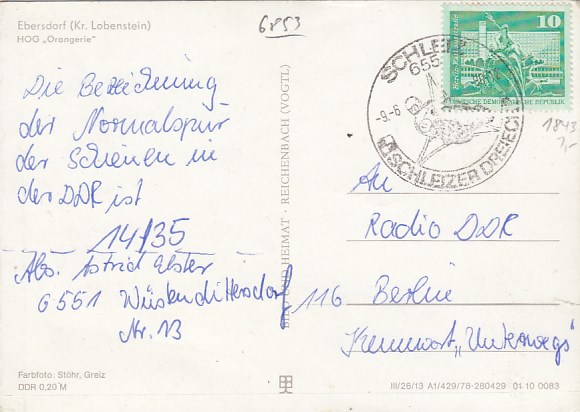 Ebersdorf (Kr. Lobenstein)
HOG „Orangerie"
6853
Die Bezeichnung
der Normalspur
der Schienen in
der DDR ist
14/35
Abs. Astrid Elster
6551 Wüstendittersdorf
Nr. 13
Farbfoto: Stöhr, Greiz
DDR 0,20 M
BILD UND HEIMAT · REICHENBACH (VOGTL)
SCHLEIZ
655
-9.-6
SCHLEIZER DREIECK
10
DEUTSCHE DEMOKRATISCHE REPUBLIK
1843
1,-
An
Radio DDR
116 Berlin
Kennwort „Unterwegs"
III/26/13 A1/429/78-280429 01 10 0083